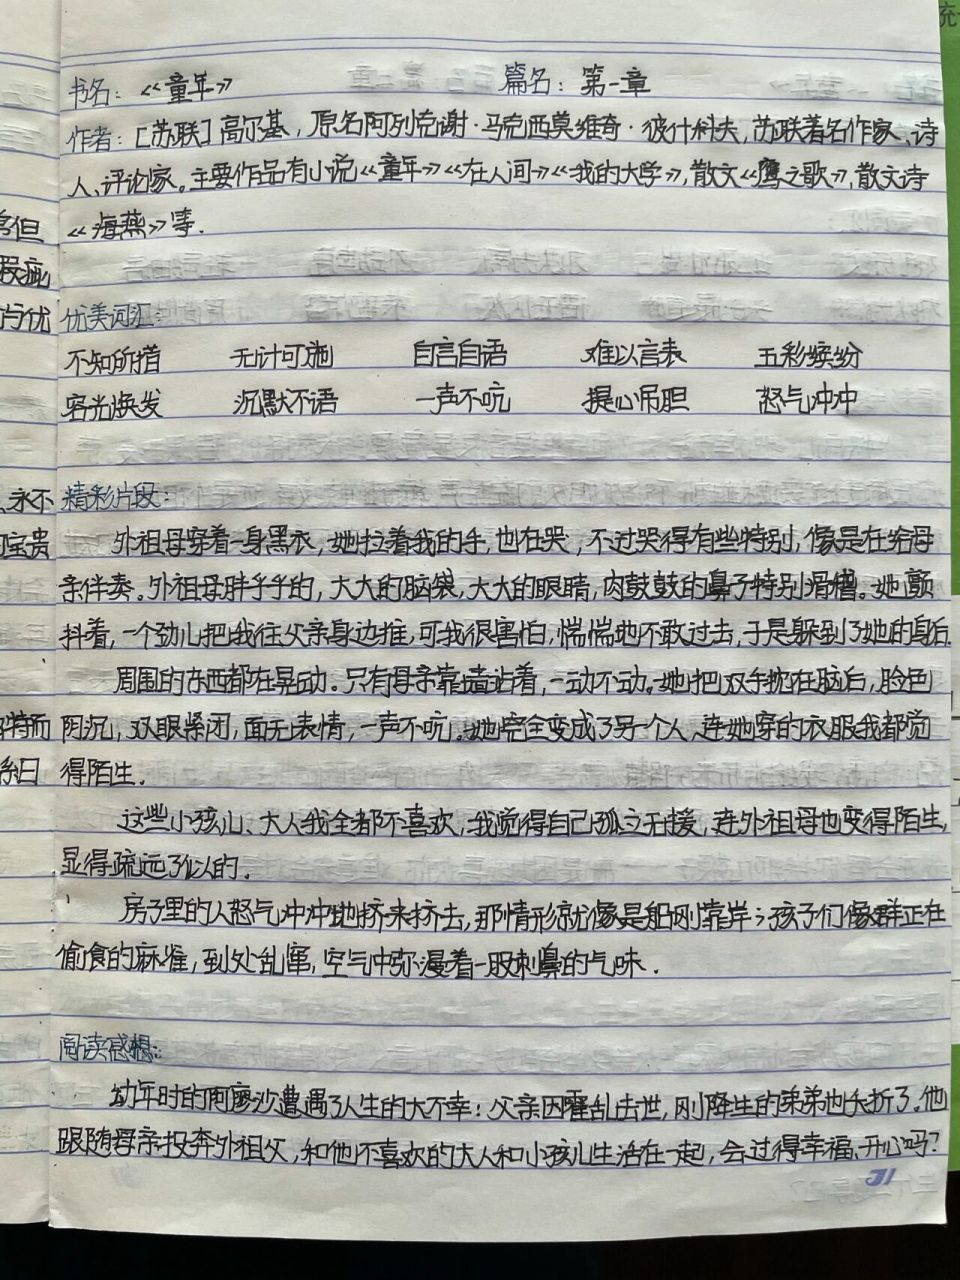 书名：《童年》 篇名：第一章
作者：[苏联]高尔基，原名阿列克谢·马克西莫维奇·彼什科夫，苏联著名作家、诗
人、评论家。主要作品有小说《童年》《在人间》《我的大学》，散文《鹰之歌》，散文诗
《海燕》等．
优美词汇：
不知所措 无计可施 自言自语 难以言表 五彩缤纷
容光焕发 沉默不语 一声不吭 提心吊胆 怒气冲冲
精彩片段：
外祖母穿着一身黑衣，她拉着我的手，也在哭，不过哭得有些特别，像是在给母
亲伴奏。外祖母胖乎乎的，大大的脑袋，大大的眼睛，肉鼓鼓的鼻子特别滑稽。她颤
抖着，一个劲儿把我往父亲身边推，可我很害怕，惴惴地不敢过去，于是躲到了她的身后．
周围的东西都在晃动。只有母亲靠墙站着，一动不动。她把双手抱在脑后，脸色
阴沉，双眼紧闭，面无表情，一声不吭。她完全变成了另一个人、连她穿的衣服我都觉
得陌生．
这些小孩儿、大人我全都不喜欢，我觉得自己孤立无援，连外祖母也变得陌生，
显得疏远了似的．
房子里的人怒气冲冲地挤来挤去，那情形就像是船刚靠岸；孩子们像群正在
偷食的麻雀，到处乱窜，空气中弥漫着一股刺鼻的气味．
阅读感想：
幼年时的阿廖沙遭遇了人生的大不幸：父亲因霍乱去世，刚降生的弟弟也夭折了．他
跟随母亲投奔外祖父，和他不喜欢的大人和小孩儿生活在一起，会过得幸福、开心吗？
但
瑕疵
与优
永不
宝贵
特而
31
充